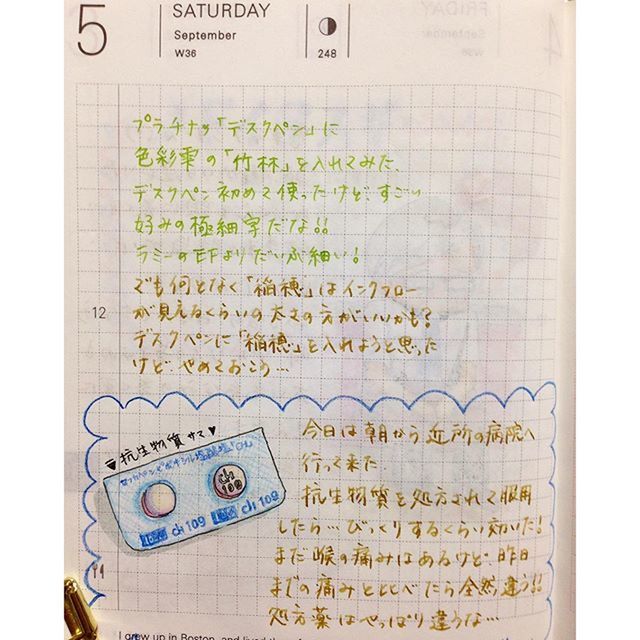 5
SATURDAY
September
W36
248
プラチナの「デスクペン」に
色彩雫の「竹林」を入れてみた、
デスクペン初めて使ったけど、すごい
好みの極細字だな!!
ラミーのEFよりだいぶ細い!
でも何となく「稲穂」はインクフロー
が見えるくらいの太さの方がいいかも?
12
デスクペンに「稲穂」を入れようと思った
けど、やめておこう…
抗生物質サマ
セフカペンピボキシル塩酸塩
ch
109
100 ch 109
100 ch 109
今日は朝から近所の病院へ
行って来た
抗生物質を処方されて服用
したら…びっくりするくらい効いた!
まだ喉の痛みはあるけど、昨日
までの痛みと比べたら全然違う!!
処方薬はやっぱり違うな…
I grew up in Boston, and